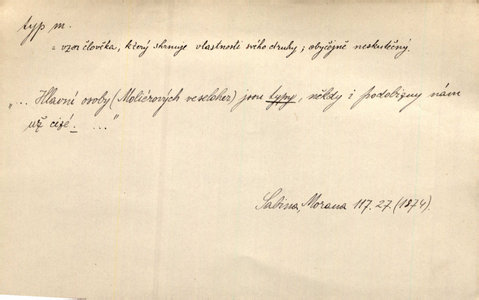 typ m.
= vzor člověka, který shrnuje vlastnosti svého druhu; obyčejně neskutečný.
„... Hlavní osoby (Molièrových veseloher) jsou typy, někdy i podobizny nám
už cizé. ..."
Sabina, Morana 117.27.(1874).